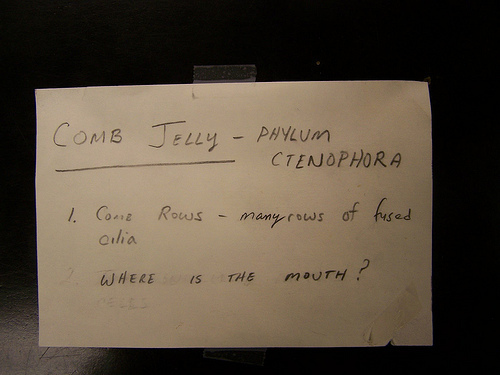 COMB JELLY - PHYLUM
CTENOPHORA
1. Come Rows - many rows of fused
cilia
2. WHERE IS THE MOUTH?